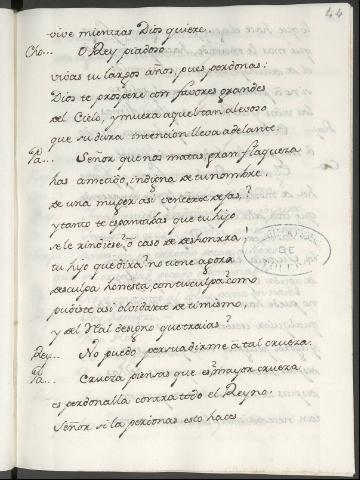 44
vive mientras Dios quiere.
Cho... O Rey piadoso
vivas tu largos años, pues perdonas:
Dios te prospere con favores grandes
del Cielo, y muera aquel tan alevoso
que su dura intencion lleva adelante.
Pa... Señor que nos matas, gran flaqueza
has ametido, indigna de tu nombre.
de una muger asi vencerte dejas?
y tanto te espantabas que tu hijo
se le rindiese? ô caso de deshonrra!
tu hijo que dira? no tiene agora
desculpa honesta, con tu culpa? como
pudiste asi olvidarte de ti mismo,
y del Real designo que traías?
Rey... No puedo persuadirme a tal crueza.
Pa... Crueza piensas que es? mayor crueza
es perdonalla contra todo el Reyno.
Señor si la perdonas esto haces